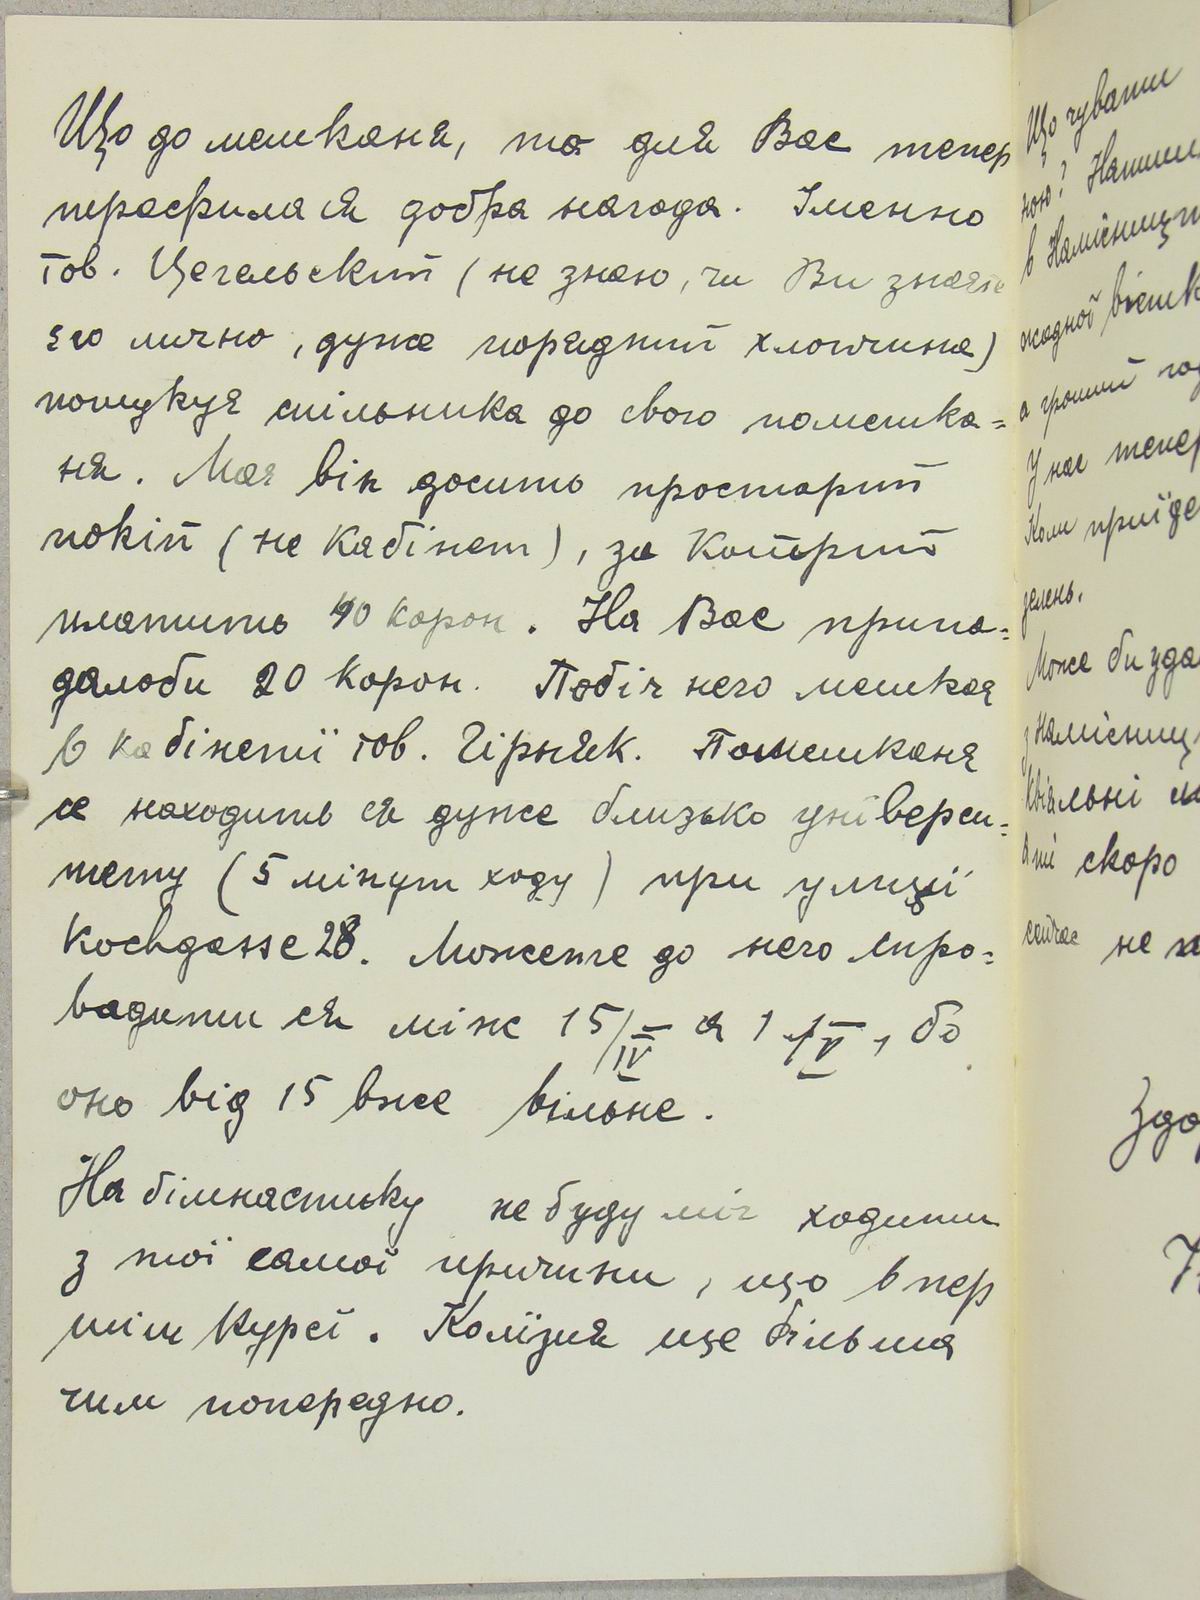 Що до мешканя, то для Вас тепер
трафила ся добра нагода. Іменно
тов. Цегельский (не знаю, чи Ви знаєте
єго лично, дуже порядний хлопчина)
пошукує спільника до свого помешка=
ня. Має він досить просторий
покій (не кабінет), за котрий
платить 40 корон. На Вас припа=
далоби 20 корон. Побіч него мешкає
в кабінеті тов. Гірняк. Помешканє
се находить ся дуже близько універси=
тету (5 мінут ходу) при улиці
Kochgasse 28. Можете до него спро=
вадити ся між 15/IV а 1/V, бо
оно від 15 вже вільне.
На гімнастику не буду міг ходити
з тої самої причини, що в пер
шім курсі. Колізия ще більша
чим попередно.
Що чувати
ною? Напиш
в Намісницт
жадної вістк
а гроший
У нас тепер
Коли приїде
зелень.
Може би уда
з намісниц
скоро
сейчас не
Здо